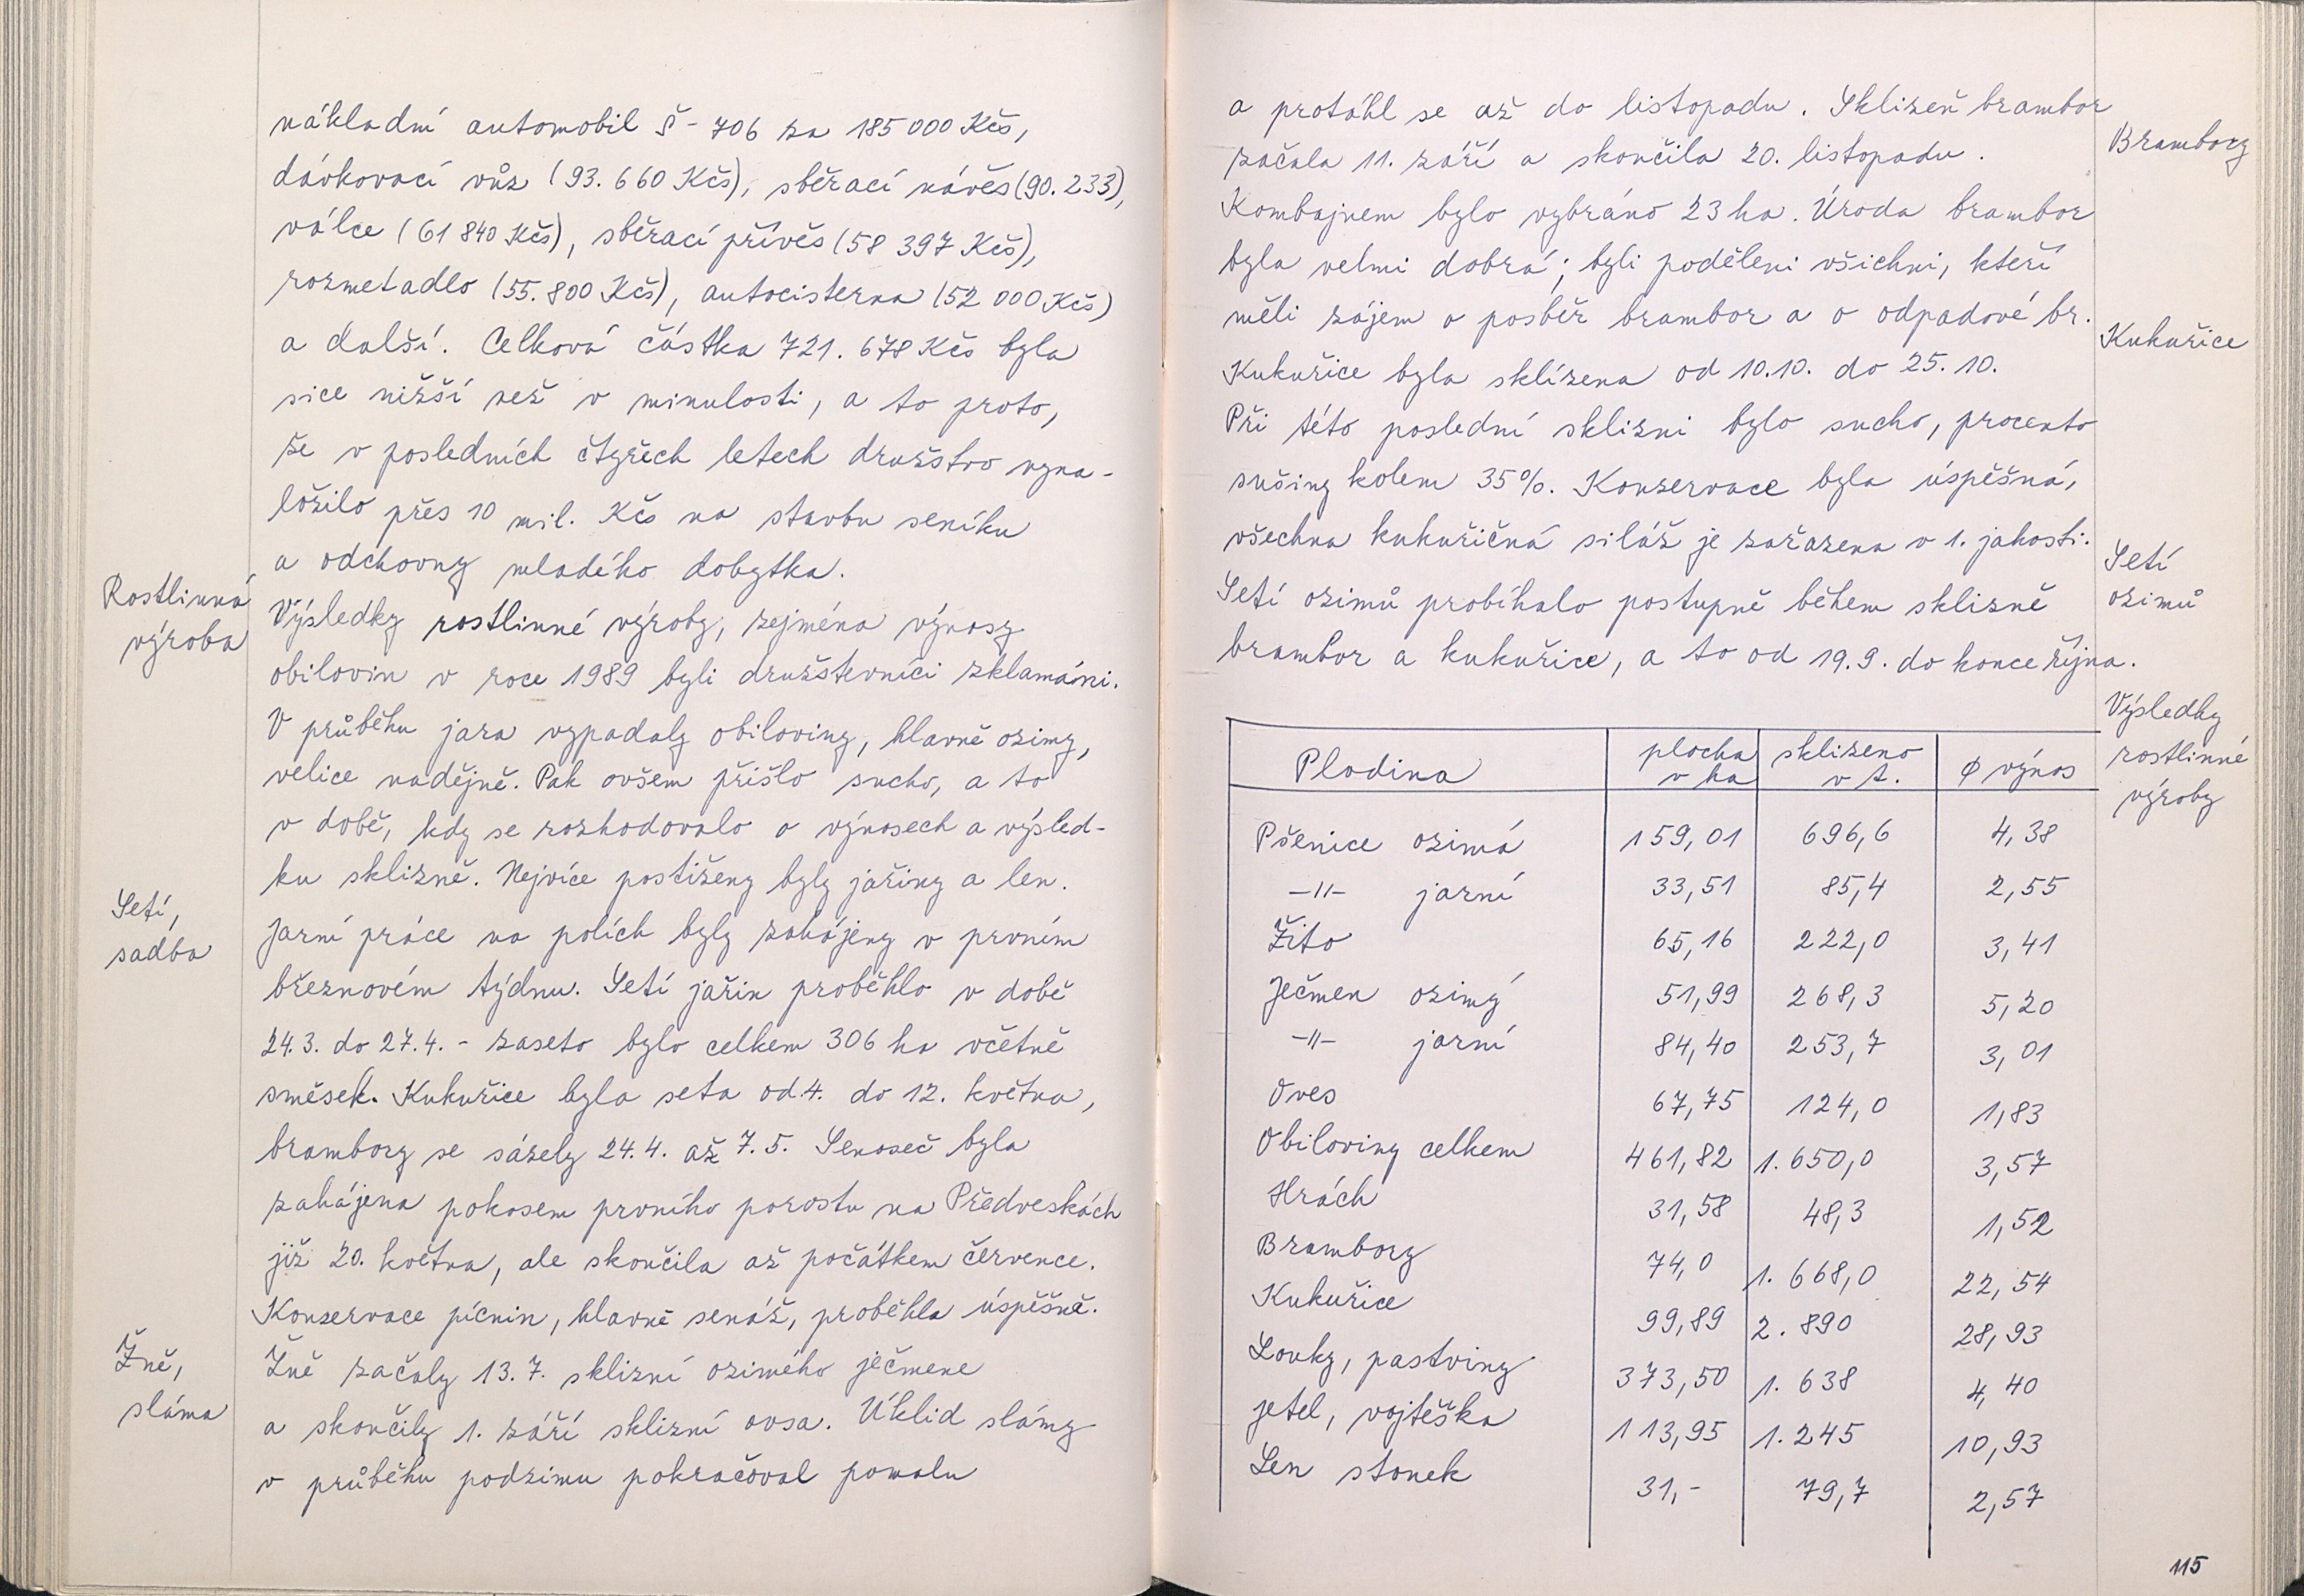 nákladní automobil Š-706 za 185 000 Kčs,
dávkovací vůz (93.660 Kčs), sběrací návěs (90.233),
válce (61 840 Kčs), sběrací přívěs (58 397 Kčs),
rozmetadlo (55.800 Kčs), autocisterna (52 000 Kčs)
a další. Celková částka 721.678 Kčs byla
sice nižší než v minulosti, a to proto,
že v posledních čtyřech letech družstvo vyna-
ložilo přes 10 mil. Kčs na stavbu seníku
a odchovny mladého dobytka.
Rostlinná
výroba
Výsledky rostlinné výroby, zejména výnosy
obilovin v roce 1989 byli družstevníci zklamáni.
V průběhu jara vypadaly obiloviny, hlavně ozimy,
velice nadějně. Pak ovšem přišlo sucho, a to
v době, kdy se rozhodovalo o výnosech a výsled-
ku sklizně. Nejvíce postiženy byly jařiny a len.
Setí,
sadba
Jarní práce na polích byly zahájeny v prvním
březnovém týdnu. Setí jařin proběhlo v době
24.3. do 27.4. - zaseto bylo celkem 306 ha včetně
směsek. Kukuřice byla seta od 4. do 12. května,
brambory se sázely 24.4. až 7.5. Senoseč byla
zahájena pokosem prvního porostu na Předveskách
již 20. května, ale skončila až počátkem července.
Konzervace pícnin, hlavně senáž, proběhla úspěšně.
Žně,
sláma
Žně začaly 13.7. sklizní ozimého ječmene
a skončily 1. září sklizní ovsa. Úklid slámy
v průběhu podzimu pokračoval pomalu
a protáhl se až do listopadu. Sklizeň brambor
Brambory
začala 11. září a skončila 20. listopadu.
Kombajnem bylo vybráno 23 ha. Úroda brambor
byla velmi dobrá; byli poděleni všichni, kteří
měli zájem o posběr brambor a o odpadové br.
Kukuřice
Kukuřice byla sklízena od 10.10. do 25.10.
Při této poslední sklizni bylo sucho, procento
sušiny kolem 35%. Konzervace byla úspěšná,
všechna kukuřičná siláž je zařazena v 1. jakosti.
Setí
ozimů
Setí ozimů probíhalo postupně během sklizně
brambor a kukuřice, a to od 19.9. do konce října.
Výsledky
rostlinné
výroby
Plodina plocha v ha sklizeno v t. ø výnos
Pšenice ozimá 159,01 696,6 4,38
-"- jarní 33,51 85,4 2,55
Žito 65,16 222,0 3,41
Ječmen ozimý 51,99 268,3 5,20
-"- jarní 84,40 253,7 3,01
Oves 67,75 124,0 1,83
Obiloviny celkem 461,82 1.650,0 3,57
Hrách 31,58 48,3 1,52
Brambory 74,0 1.668,0 22,54
Kukuřice 99,89 2.890 28,93
Louky, pastviny 373,50 1.638 4,40
Jetel, vojtěška 113,95 1.245 10,93
Len stonek 31,- 79,7 2,57
115